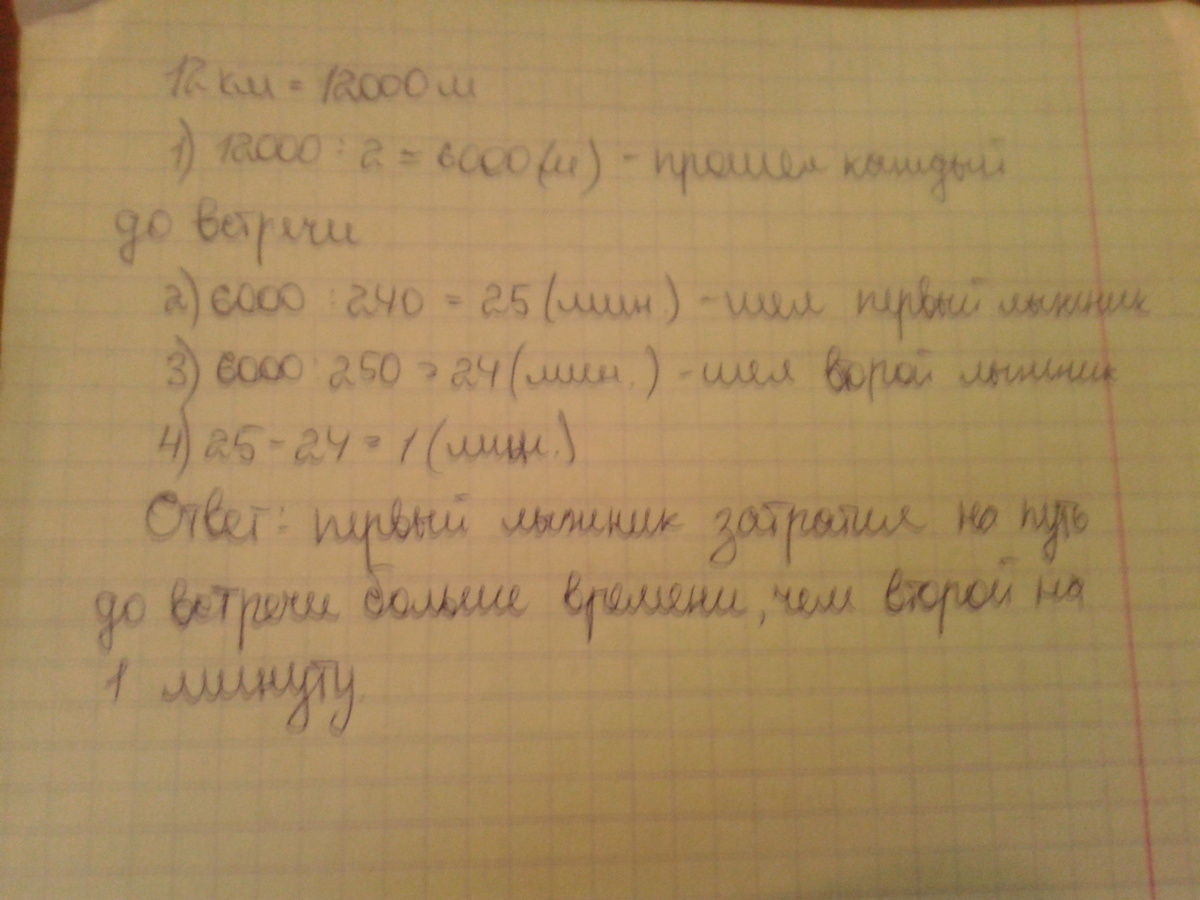 12 км = 12000 м
1) 12000 : 2 = 6000 (м) - прошел каждый
до встречи
2) 6000 : 240 = 25 (мин.) - шел первый лыжник
3) 6000 : 250 = 24 (мин.) - шел второй лыжник
4) 25 - 24 = 1 (мин.)
Ответ: первый лыжник затратил на путь
до встречи больше времени, чем второй на
1 минуту.